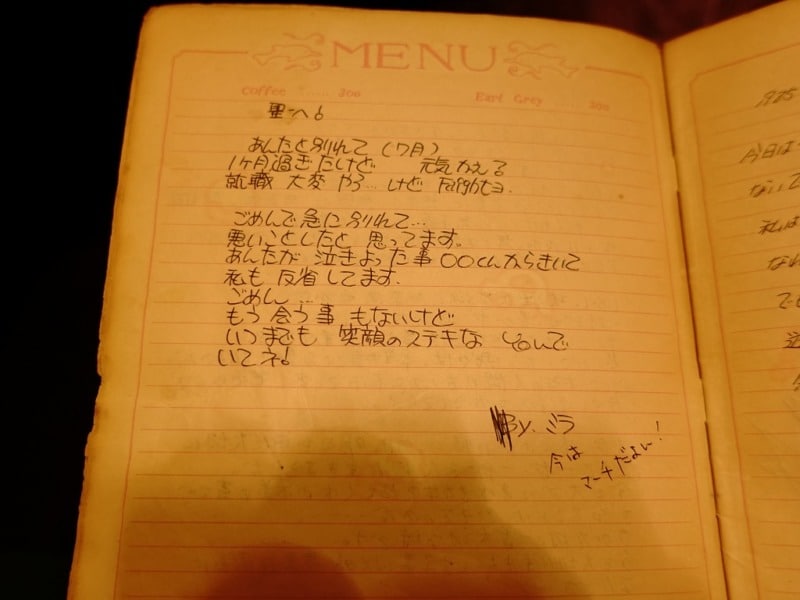 MENU
Coffee ..... 300
Earl Grey ..... 300
聖へ!
あんたと別れて(7月)
1ヶ月過ぎたけど 元気かえる
就職 大変 やろ… けど Fightヨ.
ごめんで急に別れて…
悪いことしたと 思ってます。
あんたが 泣きよった事 〇〇cんからきいて
私も 反省 してます.
ごめん …
もう 会う事 もないけど
いつまでも 笑顔のステキな で
いてネ!
By. ミラ
今は
マーチだよん!
今日は
ないて
私は
なれ